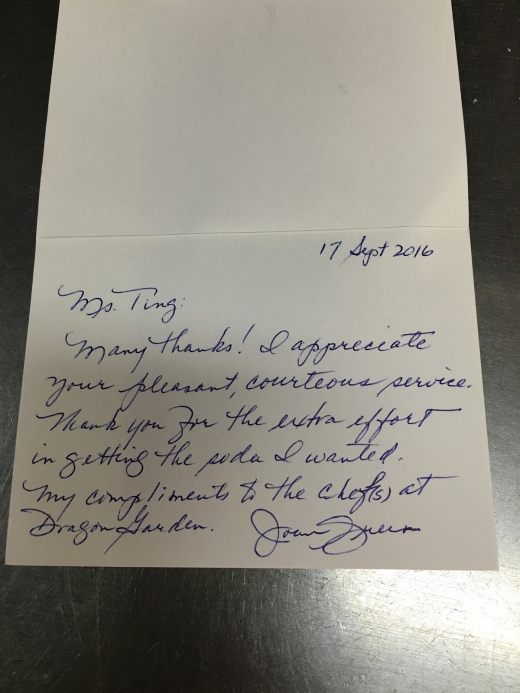 17 Sept 2016
Ms. Ting:
Many thanks! I appreciate
your pleasant, courteous service.
Thank you for the extra effort
in getting the soda I wanted.
My compliments to the chef(s) at
Dragon Garden.